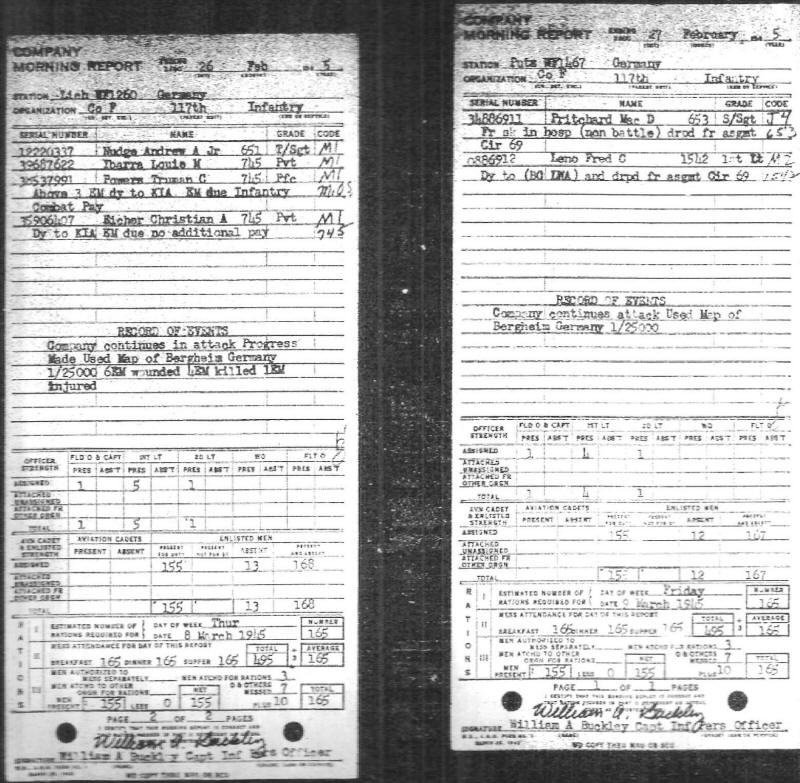 COMPANY
MORNING REPORT ENDING 26 Feb 194 5
STATION Lich WF1260 Germany
ORGANIZATION Co F 117th Infantry
SERIAL NUMBER NAME GRADE CODE
12220337 Nudge Andrew A Jr 651 T/Sgt M1
39687622 Ibarra Louie M 745 Pvt M1
Powers Truman C 745 Pfc M1
Above 3 EM dy to KIA EM due Infantry
Combat Pay
35906407 Eicher Christian A 745 Pvt M1
Dy to KIA EM due no additional pay 745
RECORD OF EVENTS
Company continues in attack Progress
Made Used Map of Bergheim Germany
1/25000 6EM wounded 4EM killed 1EM
injured
OFFICER STRENGTH FLD O & CAPT 1ST LT 2D LT WO FLT O
PRES ABS'T PRES ABS'T PRES ABS'T PRES ABS'T PRES ABS'T
ASSIGNED 1 5 1
ATTACHED UNASSIGNED
ATTACHED FR OTHER ORGN
TOTAL 1 5 1
AVN CADET & ENLISTED STRENGTH AVIATION CADETS ENLISTED MEN
PRESENT ABSENT PRESENT FOR DUTY PRESENT NOT FOR DY ABSENT PRESENT AND ABSENT
ASSIGNED 155 13 168
ATTACHED UNASSIGNED
ATTACHED FR OTHER ORGN
TOTAL 155 13 168
RATIONS
I ESTIMATED NUMBER OF RATIONS REQUIRED FOR DAY OF WEEK Thur NUMBER
DATE 8 March 1945 165
MESS ATTENDANCE FOR DAY OF THIS REPORT TOTAL AVERAGE
BREAKFAST 165 DINNER 165 SUPPER 165 495 ÷ 3 165
MEN AUTHORIZED TO MESS SEPARATELY MEN ATCHD FOR RATIONS 3
III MEN ATCHD TO OTHER ORGN FOR RATIONS NET O & OTHERS MESSED 7 TOTAL
MEN PRESENT 155 LESS 0 155 PLUS 10 165
PAGE 2 OF 2 PAGES
I CERTIFY THAT THIS MORNING REPORT IS CORRECT AND
William A Buckley
SIGNATURE William A Buckley Capt Inf Pers Officer
WD COPY THRU MRU OR SCU
COMPANY
MORNING REPORT ENDING 27 February 194 5
STATION Putz WF1467 Germany
ORGANIZATION Co F 117th Infantry
SERIAL NUMBER NAME GRADE CODE
34886911 Pritchard Mac D 653 S/Sgt J4
Fr sk in hosp (non battle) drpd fr asgmt 653
Cir 69
0886912 Leno Fred C 1542 1st Lt
Dy to (BC LWA) and drpd fr asgmt Cir 69 1542
RECORD OF EVENTS
Company continues attack Used Map of
Bergheim Germany 1/25000
OFFICER STRENGTH FLD O & CAPT 1ST LT 2D LT WO FLT O
PRES ABS'T PRES ABS'T PRES ABS'T PRES ABS'T PRES ABS'T
ASSIGNED 1 4 1
ATTACHED UNASSIGNED
ATTACHED FR OTHER ORGN
TOTAL 1 4 1
AVN CADET & ENLISTED STRENGTH AVIATION CADETS ENLISTED MEN
PRESENT ABSENT PRESENT FOR DUTY PRESENT NOT FOR DY ABSENT PRESENT AND ABSENT
ASSIGNED 155 12 167
ATTACHED UNASSIGNED
ATTACHED FR OTHER ORGN
TOTAL 155 12 167
RATIONS
I ESTIMATED NUMBER OF RATIONS REQUIRED FOR DAY OF WEEK Friday NUMBER
DATE 9 March 1945 165
MESS ATTENDANCE FOR DAY OF THIS REPORT TOTAL AVERAGE
BREAKFAST 165 DINNER 165 SUPPER 165 495 ÷ 3 165
MEN AUTHORIZED TO MESS SEPARATELY MEN ATCHD FOR RATIONS 3
III MEN ATCHD TO OTHER ORGN FOR RATIONS NET O & OTHERS MESSED 7 TOTAL
MEN PRESENT 155 LESS 0 155 PLUS 10 165
PAGE 1 OF 1 PAGES
I CERTIFY THAT THIS MORNING REPORT IS CORRECT AND
William A. Buckley
SIGNATURE William A Buckley Capt Inf Pers Officer
WD COPY THRU MRU OR SCU